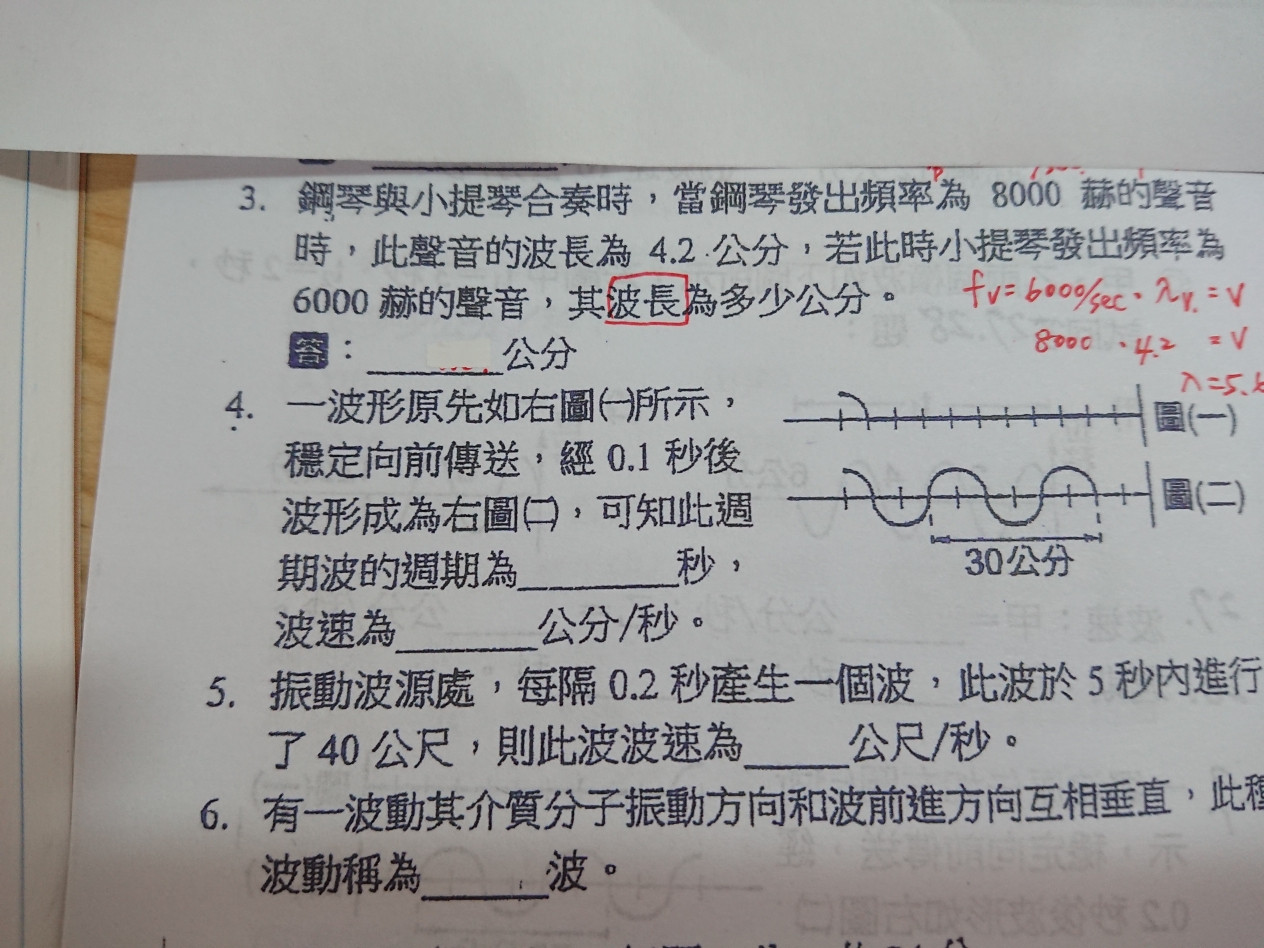 3. 鋼琴與小提琴合奏時，當鋼琴發出頻率為 8000 赫的聲音
時，此聲音的波長為 4.2 公分，若此時小提琴發出頻率為
6000 赫的聲音，其波長為多少公分。
fv=6000/sec · λv. = v
8000 · 4.2 = v
λ=5.
答：______公分
4. 一波形原先如右圖㈠所示，
穩定向前傳送，經 0.1 秒後
波形成為右圖㈡，可知此週
期波的週期為______秒，
波速為______公分/秒。
圖(一)
圖(二)
30公分
5. 振動波源處，每隔 0.2 秒產生一個波，此波於 5 秒內進行
了 40 公尺，則此波波速為____公尺/秒。
6. 有一波動其介質分子振動方向和波前進方向互相垂直，此種
波動稱為_____波。